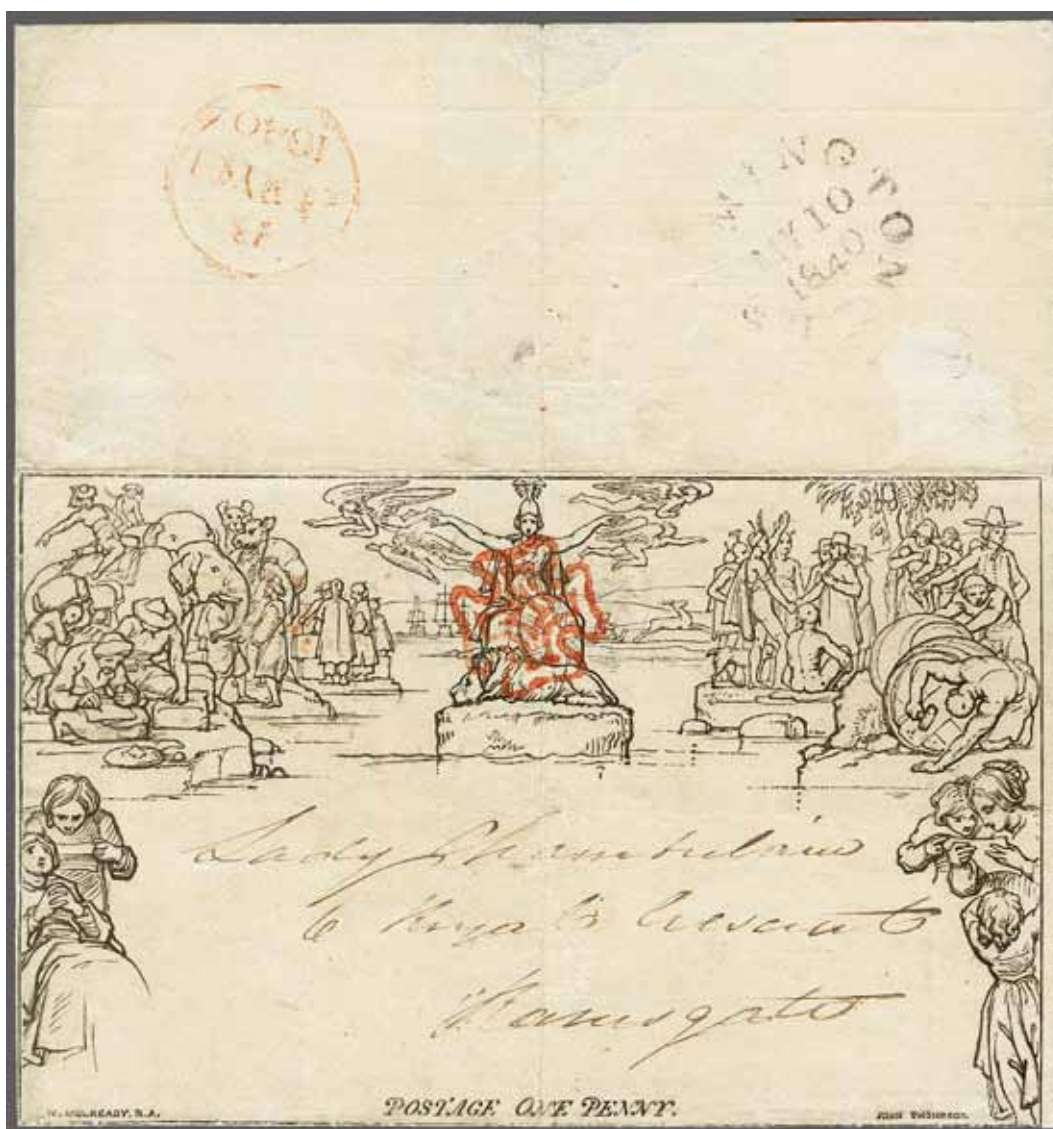 MY 10
1840
Lady Chamberlain
6 Royal Crescent
Ramsgate
W. MULREADY, R.A.
POSTAGE ONE PENNY.
JOHN THOMPSON.